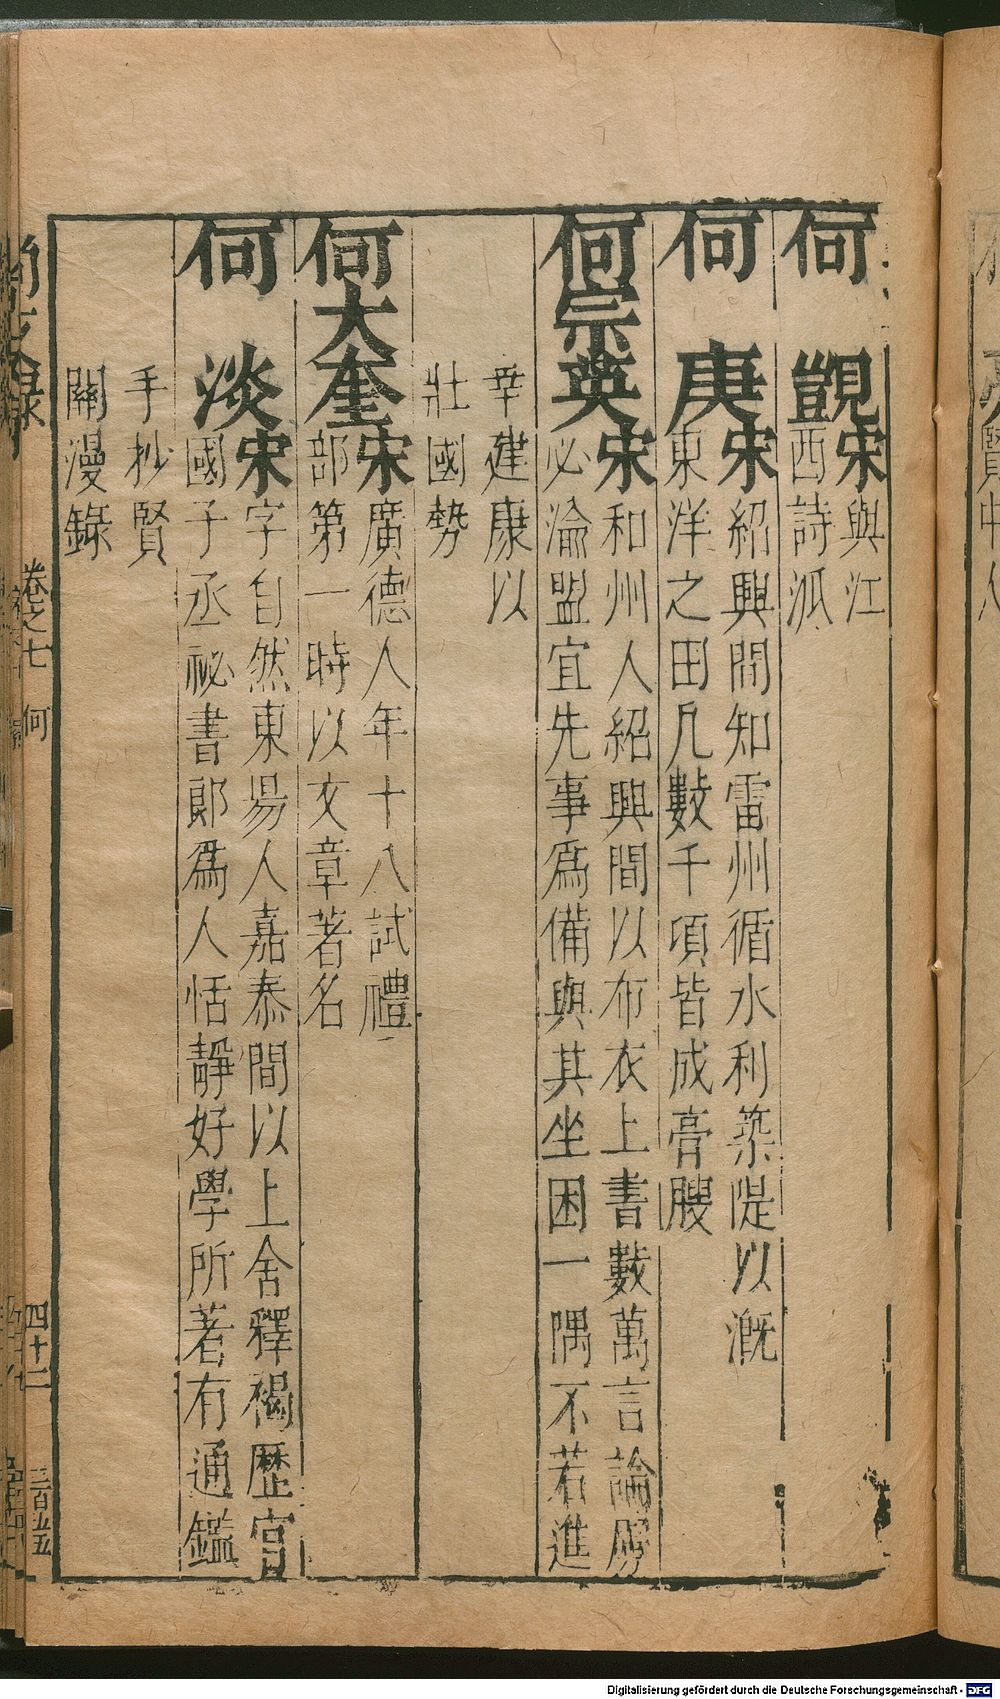 何　覬宋與江
西詩派
何　庚宋紹興間知雷州循水利築隄以溉
東洋之田凡數千頃皆成膏腴
何宗英宋和州人紹興間以布衣上書數萬言論虜
必渝盟宜先事爲備與其坐困一隅不若進
幸建康以
壯國勢
何大奎宋廣德人年十八試禮
部第一時以文章著名
何　淡宋字自然東陽人嘉泰間以上舍釋褐歷官
國子丞祕書郎爲人恬靜好學所著有通鑑
手抄賢
關漫錄
卷之七　何　四十二　三百五五
Digitalisierung gefördert durch die Deutsche Forschungsgemeinschaft - DFG